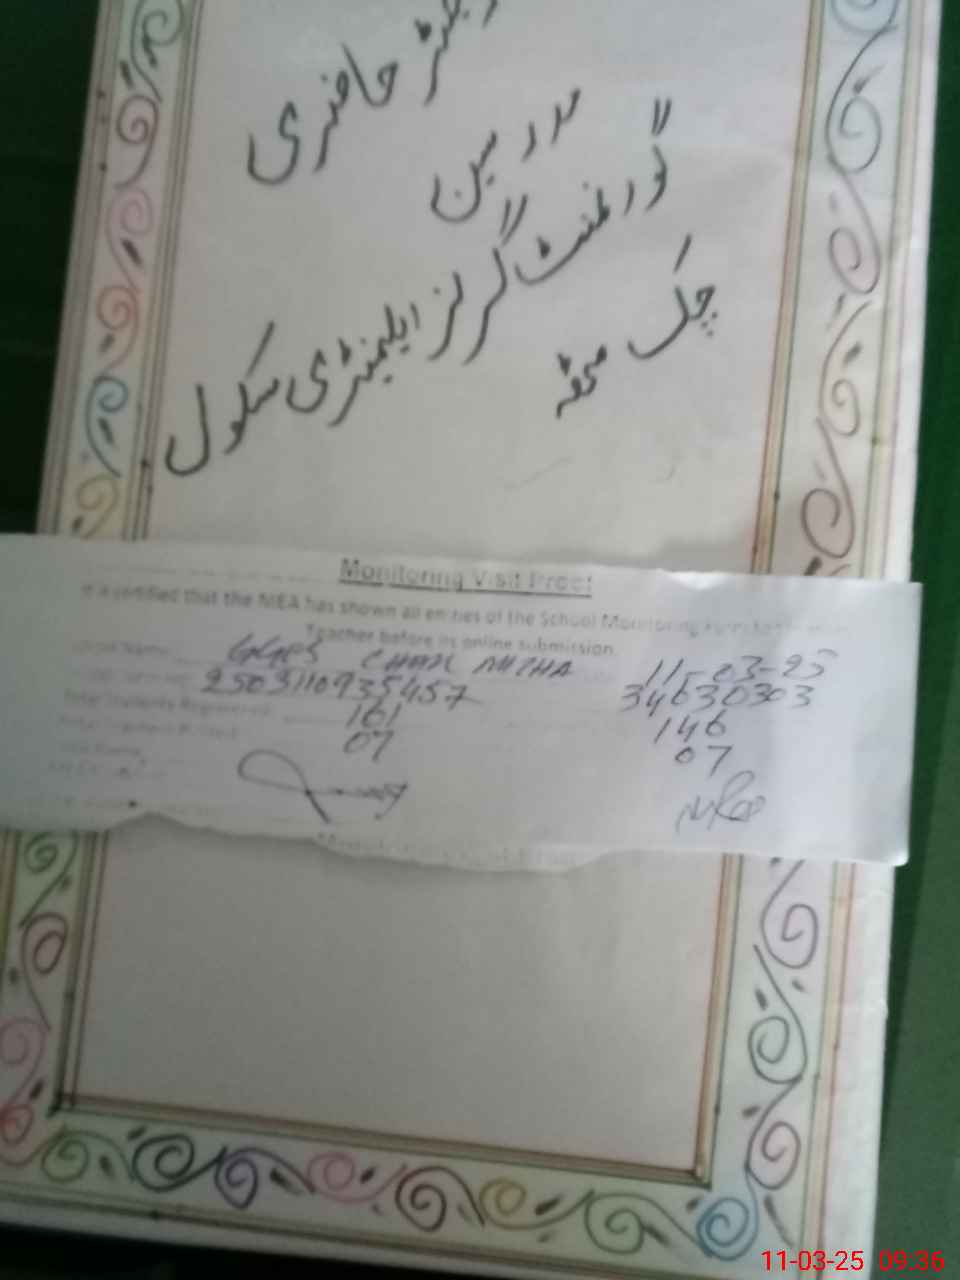 رجسٹر حاضری
مدرسین
گورنمنٹ گرلز ایلیمنٹری سکول
چک مٹھہ
Monitoring Visit Proof
It is certified that the MEA has shown all entries of the School Monitoring Form to
Teacher before its online submission.
School Name: GGES CHAK MITHA 11-03-25
25031109735457 34630303
Total Students Registered: 161 146
07 07